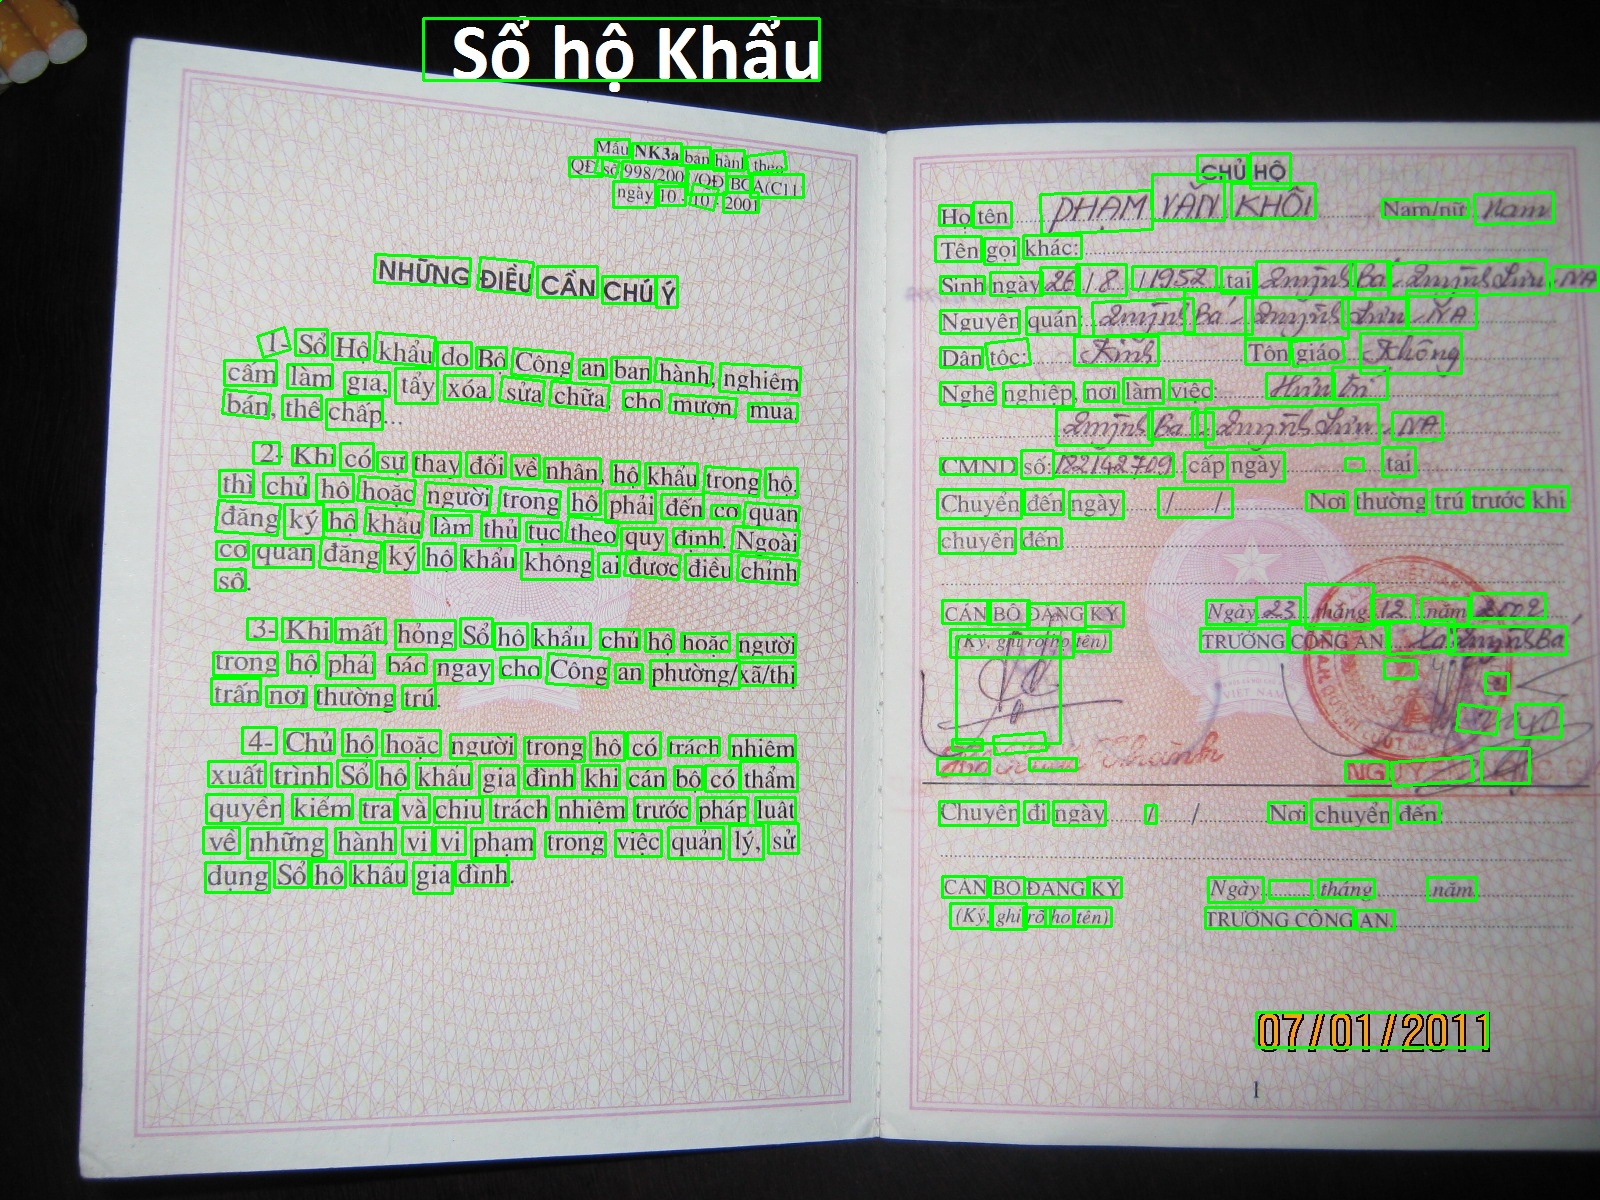 Sổ hộ Khẩu
Mẫu NK3a ban hành theo
QĐ số 998/2001/QĐ BCA(C11)
ngày 10 - 10 - 2001
NHỮNG ĐIỀU CẦN CHÚ Ý
1- Sổ Hộ khẩu do Bộ Công an ban hành, nghiêm
cấm làm giả, tẩy xóa, sửa chữa, cho mượn mua,
bán, thế chấp...
2- Khi có sự thay đổi về nhân, hộ khẩu trong hộ,
thì chủ hộ hoặc người trong hộ phải đến cơ quan
đăng ký hộ khẩu làm thủ tục theo quy định. Ngoài
cơ quan đăng ký hộ khẩu không ai được điều chỉnh
sổ.
3- Khi mất hỏng Sổ hộ khẩu chủ hộ hoặc người
trong hộ phải báo ngay cho Công an phường/xã/thị
trấn nơi thường trú.
4- Chủ hộ hoặc người trong hộ có trách nhiệm
xuất trình Sổ hộ khẩu gia đình khi cán bộ có thẩm
quyền kiểm tra và chịu trách nhiệm trước pháp luật
về những hành vi vi phạm trong việc quản lý, sử
dụng Sổ hộ khẩu gia đình.
CHỦ HỘ
Họ tên PHẠM VĂN KHÔI Nam/nữ Nam
Tên gọi khác:
Sinh ngày 26/8/1952 tại Quỳnh Bá, Quỳnh Lưu, NA
Nguyên quán Quỳnh Bá - Quỳnh Lưu - NA
Dân tộc: Kinh Tôn giáo Không
Nghề nghiệp, nơi làm việc: Hưu trí
Quỳnh Bá, Quỳnh Lưu, NA
CMND số: 182142709 cấp ngày - tại
Chuyển đến ngày / / Nơi thường trú trước khi
chuyển đến
CÁN BỘ ĐĂNG KÝ
(Ký, ghi rõ họ tên)
Ngày 23 tháng 12 năm 2002
TRƯỞNG CÔNG AN Xã Quỳnh Bá
VIỆT NAM
Chuyển đi ngày / / Nơi chuyển đến
CÁN BỘ ĐĂNG KÝ
(Ký, ghi rõ họ tên)
Ngày tháng năm
TRƯỞNG CÔNG AN
07/01/2011
1